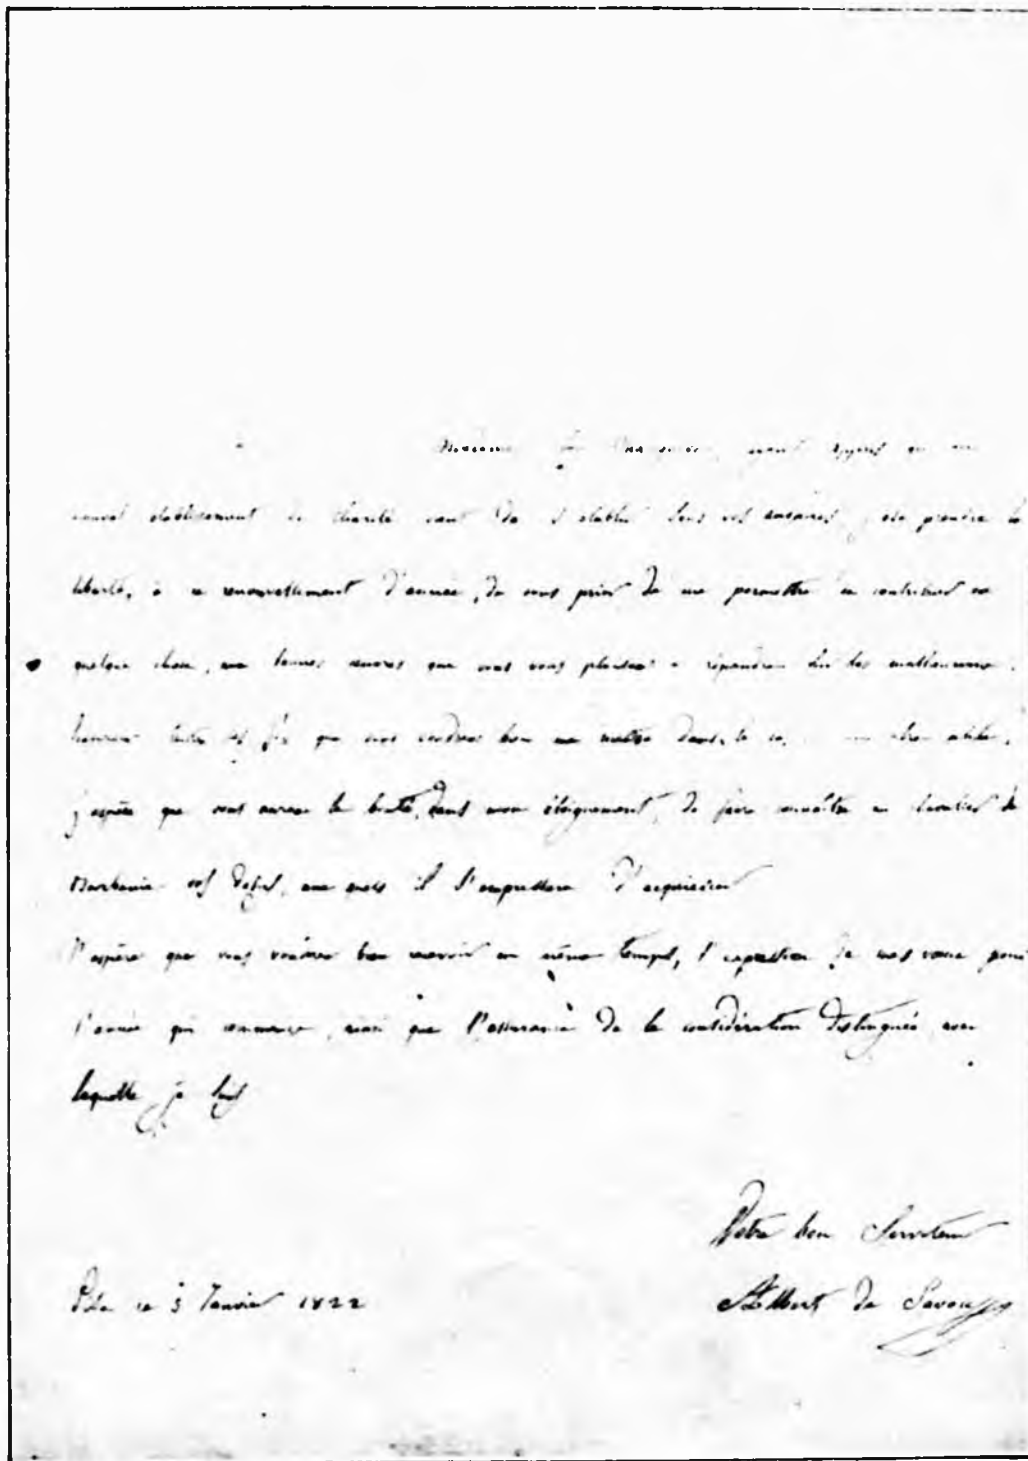 Madame ayant appris qu'un
nouvel etablissement de charité vient de s'etablir sous vos auspices, ose prendre la
liberté, à ce renouvellement d'année, de vous prier de me permettre de contribuer en
quelque chose, aux bonnes œuvres que vous vous plaisez a répandre sur les malheureux.
toutes les fois que vous voudrez bien me mettre dans le
j'espère que vous aurez la bonté, dans mon éloignement, de faire connaître au chevalier de
vos desirs, aux quels il s'empressera d'acquiescer
J'espère que vous voudrez bien recevoir en même temps, l'expression de mes vœux pour
l'année qui commence, ainsi que l'assurance de la considération distinguée avec
laquelle je suis
Votre bon Serviteur
Pise ce 5 Janvier 1822
Albert de Savoye